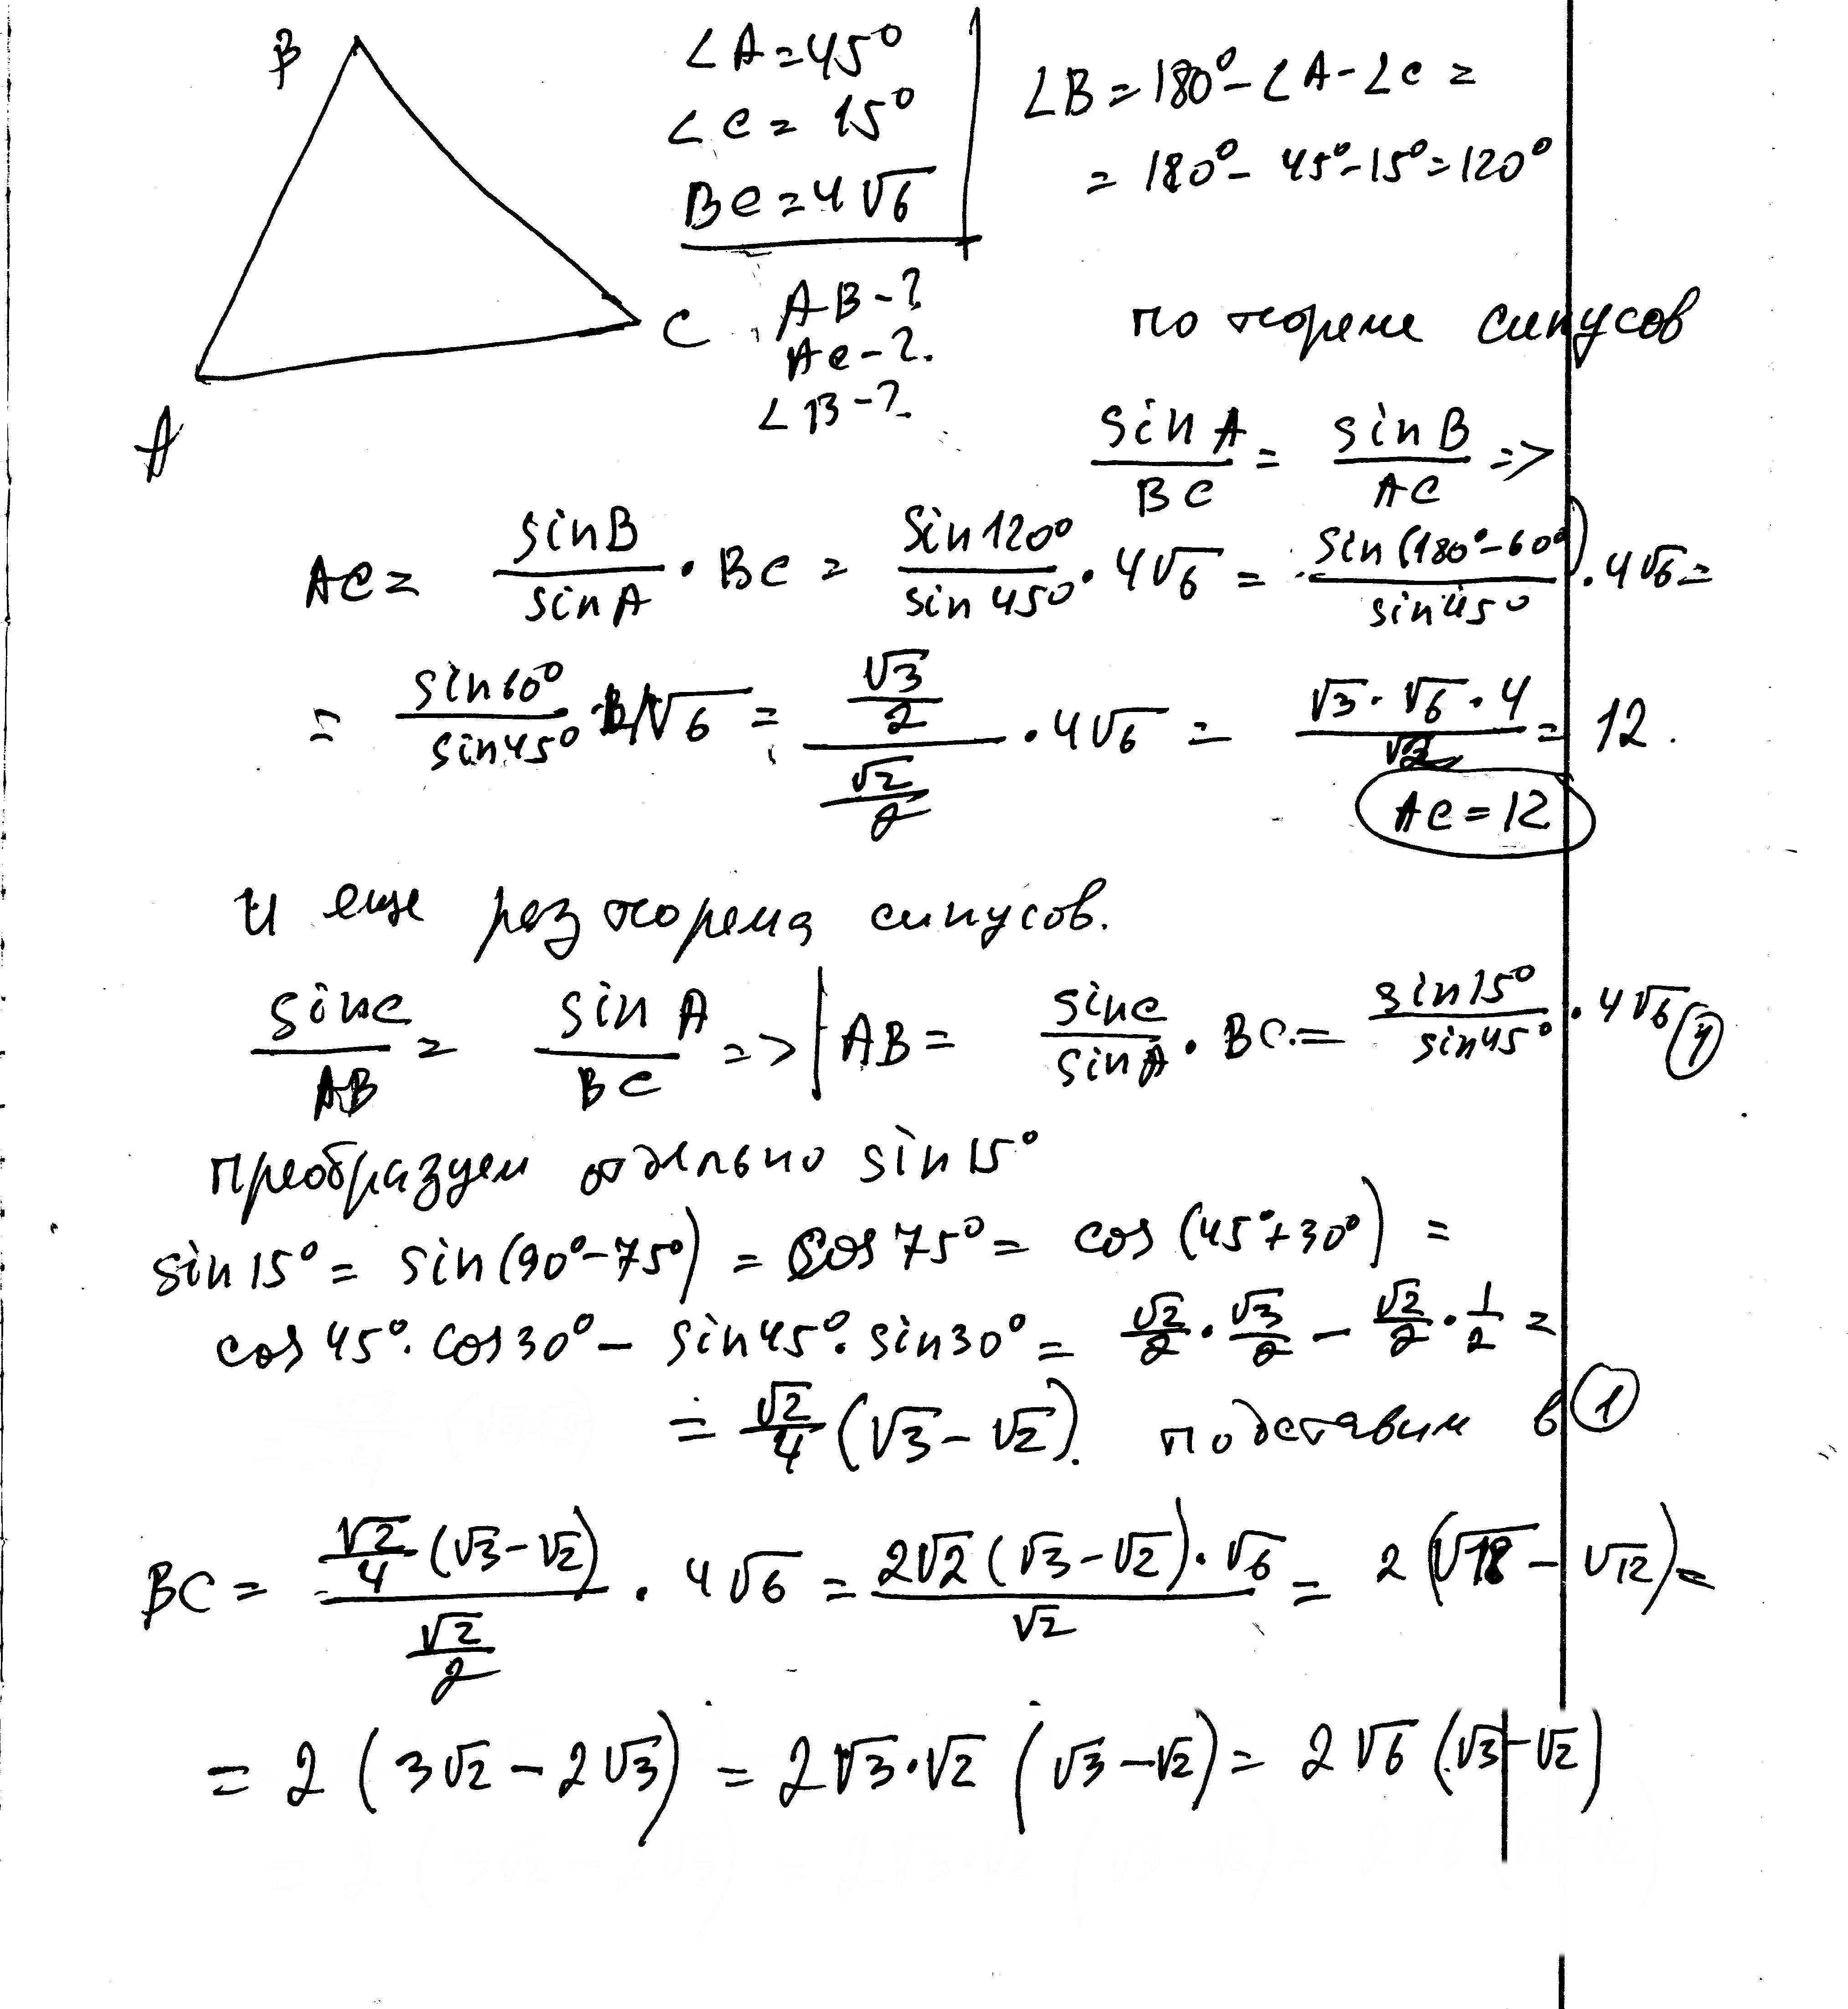 B
∠A=45°
∠C=15°
BC=4√6
AB-?
AC-?
∠B-?
C
A
∠B=180°-∠A-∠C=
=180°-45°-15°=120°
по теореме синусов
sinA/BC = sinB/AC =>
AC= sinB/sinA · BC = sin120°/sin45° · 4√6 = sin(180°-60°)/sin45° · 4√6=
= sin60°/sin45° · 4√6 = (√3/2)/(√2/2) · 4√6 = √3·√6·4/√2 = 12.
AC=12
и еще раз теорема синусов.
sinC/AB = sinA/BC => | AB= sinC/sinA · BC = sin15°/sin45° · 4√6 (1)
преобразуем отдельно sin15°
sin15°= sin(90°-75°) = cos75°= cos(45°+30°) =
cos45°·cos30°- sin45°·sin30°= √2/2·√3/2 - √2/2·1/2 =
= √2/4 (√3-√2). подставим в (1)
BC= (√2/4 (√3-√2))/(√2/2) · 4√6 = 2√2(√3-√2)·√6/√2 = 2(√18-√12)=
= 2(3√2-2√3) = 2√3·√2(√3-√2)= 2√6(√3-√2)